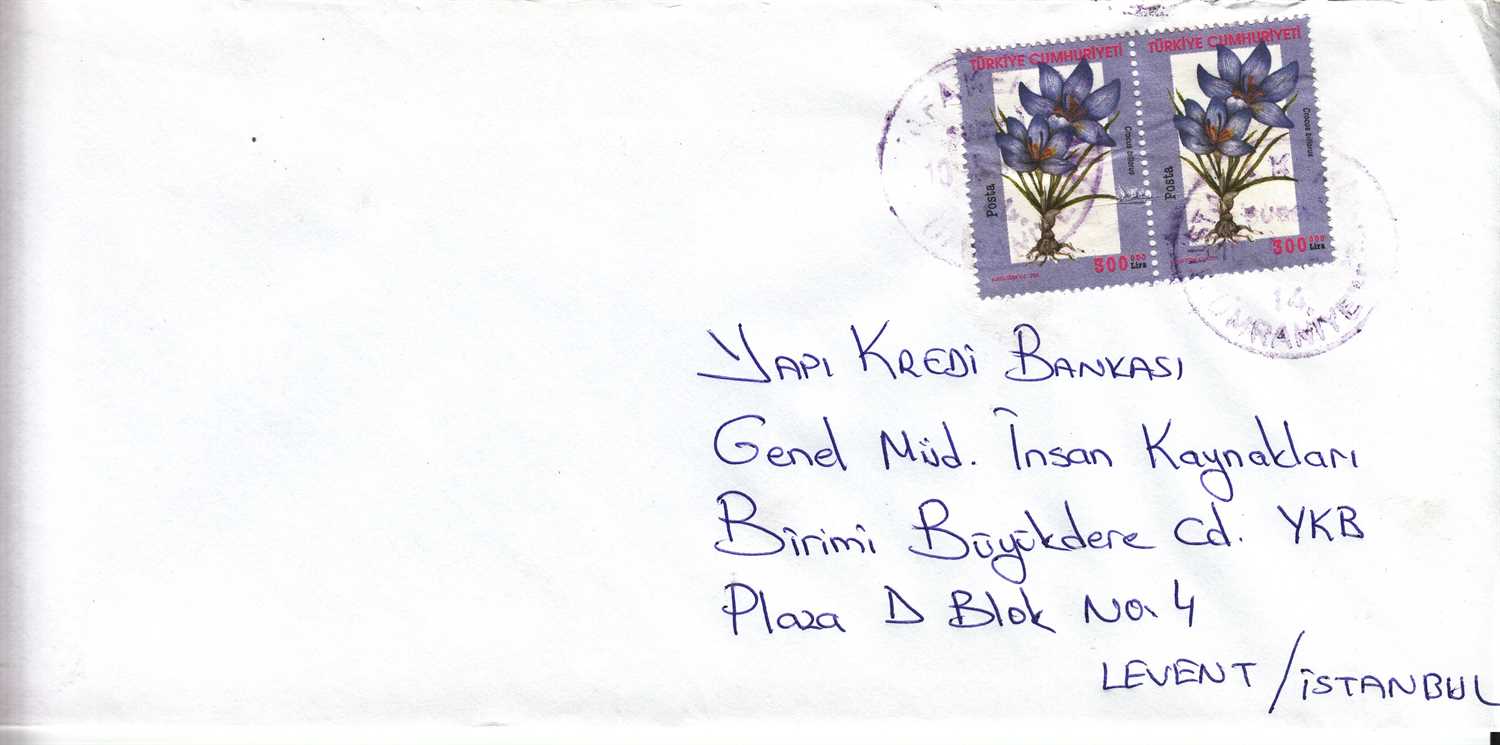 TÜRKİYE CUMHURİYETİ TÜRKİYE CUMHURİYETİ
Crocus biflorus Crocus biflorus
Posta Posta
300 000 Lira 300 000 Lira
14
ÜMRANİYE
YAPI KREDİ BANKASI
Genel Müd. İnsan Kaynakları
Birimi Büyükdere Cd. YKB
Plaza D Blok No. 4
LEVENT / İSTANBUL